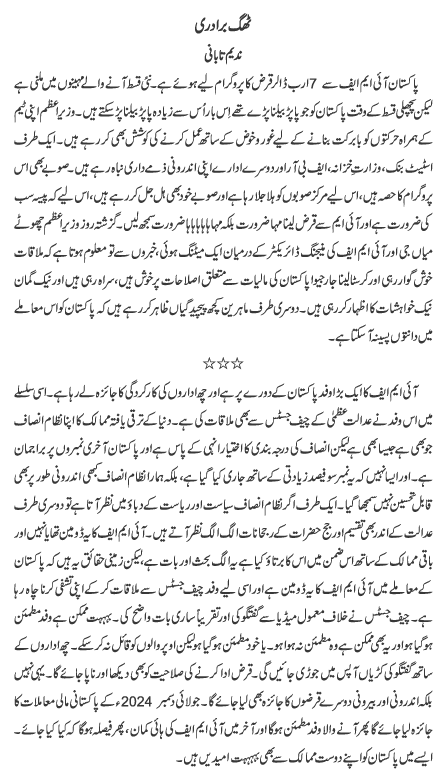 ٹھگ برادری
ندیم تابانی
پاکستان آئی ایم ایف سے 7 ارب ڈالر قرض کا پروگرام لیے ہوئے ہے۔ نئی قسط آنے والے مہینوں میں ملنی ہے
لیکن پچھلی قسط کے وقت پاکستان کو جو پاپڑ بیلنا پڑے تھے اِس بار اُس سے زیادہ پاپڑ بیلنا پڑ سکتے ہیں۔ وزیراعظم اپنی ٹیم
کے ہمراہ حرکتوں کو بابرکت بنانے کے لیے غور و خوض کے ساتھ عمل کرنے کی کوشش بھی کر رہے ہیں۔ ایک طرف
اسٹیٹ بنک، وزارتِ خزانہ، ایف بی آر اور دوسرے ادارے اپنی اندرونی ذمے داری نباہ رہے ہیں۔ صوبے بھی اس
پروگرام کا حصہ ہیں، اس لیے مرکز صوبوں کو ہلا جلا رہا ہے اور صوبے خود بھی ہل جل کر رہے ہیں، اس لیے کہ پیسہ سب
کی ضرورت ہے اور آئی ایم سے قرض لینا مہا ضرورت بلکہ مہاہاہاہاہاہا ضرورت سمجھ لیں۔ گزشتہ روز وزیراعظم چھوٹے
میاں جی اور آئی ایم ایف کی منیجنگ ڈائریکٹر کے درمیان ایک میٹنگ ہوئی، خبروں سے تو معلوم ہوتا ہے کہ ملاقات
خوش گوار رہی اور کرسٹالینا جارجیوا پاکستان کی مالیات سے متعلق اصلاحات پر خوش ہیں، سراہ رہی ہیں اور نیک گمان
نیک خواہشات کا اظہار کر رہی ہیں۔ دوسری طرف ماہرین کچھ پیچیدگیاں ظاہر کر رہے ہیں کہ پاکستان کو اس معاملے
میں دانتوں پسینہ آ سکتا ہے۔
☆☆☆
آئی ایم ایف کا ایک بڑا وفد پاکستان کے دورے پر ہے اور چھ اداروں کی کارکردگی کا جائزہ لے رہا ہے۔ اسی سلسلے
میں اس وفد نے عدالت عظمیٰ کے چیف جسٹس سے بھی ملاقات کی ہے۔ دنیا کے ترقی یافتہ ممالک کا اپنا نظام انصاف
جو بھی ہے جیسا بھی ہے لیکن انصاف کی درجہ بندی کا اختیار انہی کے پاس ہے اور پاکستان آخری نمبروں پر براجمان
ہے۔ اور ایسا نہیں کہ یہ نمبر سو فیصد زیادتی کے ساتھ جاری کیا گیا ہے، بلکہ ہمارا نظام انصاف کبھی اندرونی طور پر بھی
قابل تحسین نہیں سمجھا گیا۔ ایک طرف اگر نظام انصاف سیاست اور ریاست کے دباؤ میں نظر آتا ہے تو دوسری طرف
عدالت کے اندر بھی تقسیم اور جج حضرات کے رجحانات الگ الگ نظر آتے ہیں۔ آئی ایم ایف کا یہ ڈومین تھا یا نہیں اور
باقی ممالک کے ساتھ اس ضمن میں اس کا برتاؤ کیا ہے یہ الگ بحث اور بات ہے، لیکن زمینی حقائق یہ ہیں کہ پاکستان
کے معاملے میں آئی ایم ایف کا یہ ڈومین ہے اور اسی لیے وفد چیف جسٹس سے ملاقات کر کے اپنی تشفی کرنا چاہ رہا
ہے۔ چیف جسٹس نے خلاف معمول میڈیا سے گفتگو کی اور تقریباً ساری بات واضح کی۔ بہہت ممکن ہے وفد مطمئن
ہو گیا ہو اور یہ بھی ممکن ہے وہ مطمئن نہ ہوا ہو۔ یا خود مطمئن ہو گیا لیکن اوپر والوں کو قائل نہ کر سکے۔ چھ اداروں کے
ساتھ گفتگو کی کڑیاں آپس میں جوڑی جائیں گی۔ قرض ادا کرنے کی صلاحیت کو بھی دیکھا اور ناپا جائے گا۔ یہی نہیں
بلکہ اندرونی اور بیرونی دوسرے قرضوں کا جائزہ بھی لیا جائے گا۔ جولائی دسمبر 2024ء کے پاکستانی مالی معاملات کا
جائزہ لیا جائے گا پھر آنے والا وفد مطمئن ہوگا اور آخر میں آئی ایم ایف کی ہائی کمان، پھر فیصلہ ہوگا کہ کیا کیا جائے۔
ایسے میں پاکستان کو اپنے دوست ممالک سے بھی بہہہت امیدیں ہیں۔